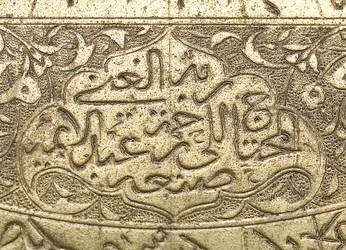 صنعه
المحتاج الى رحمة
ربه الغني
عبد الائمه